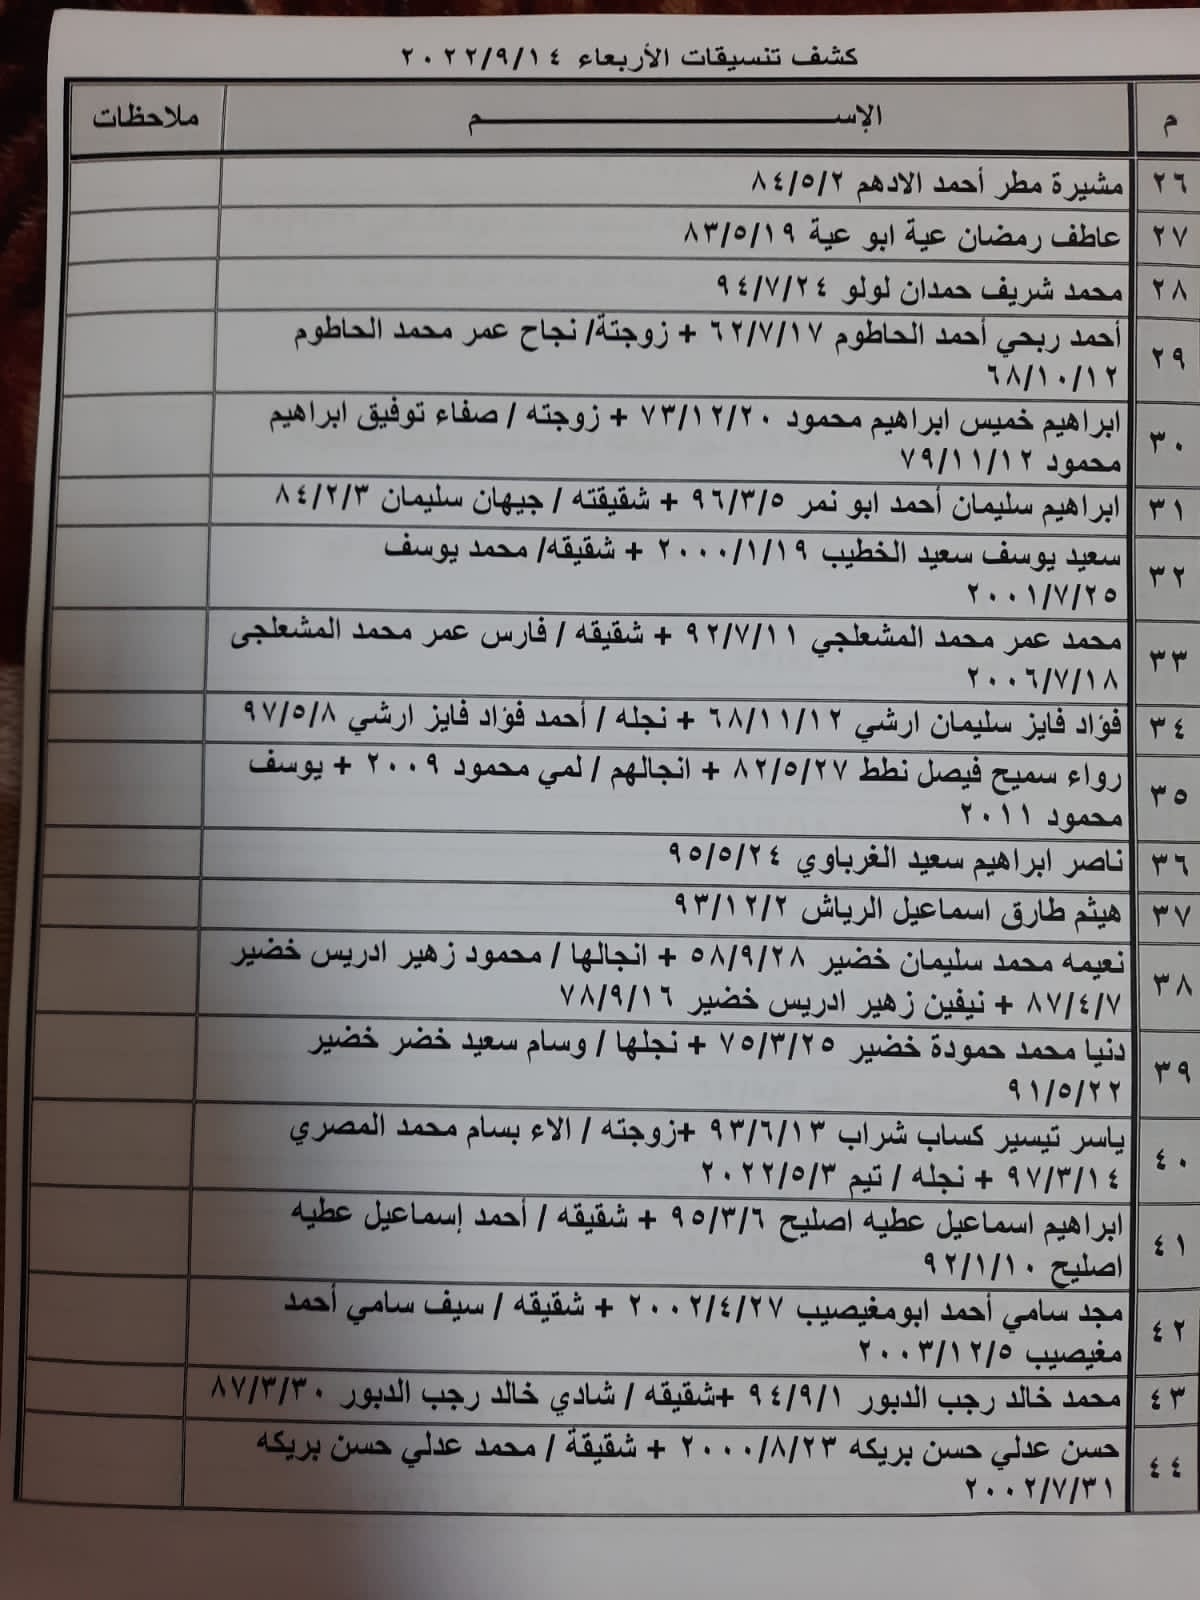 كشف تنسيقات الأربعاء ٢٠٢٢/٩/١٤
م الإســـــــم ملاحظات
٢٦ مشيرة مطر أحمد الادهم ٨٤/٥/٢
٢٧ عاطف رمضان عية ابو عية ٨٣/٥/١٩
٢٨ محمد شريف حمدان لولو ٩٤/٧/٢٤
٢٩ أحمد ربحي أحمد الحاطوم ٦٢/٧/١٧ + زوجتة/ نجاح عمر محمد الحاطوم
٦٨/١٠/١٢
٣٠ ابراهيم خميس ابراهيم محمود ٧٣/١٢/٢٠ + زوجته / صفاء توفيق ابراهيم
محمود ٧٩/١١/١٢
٣١ ابراهيم سليمان أحمد ابو نمر ٩٦/٣/٥ + شقيقته / جيهان سليمان ٨٤/٢/٣
٣٢ سعيد يوسف سعيد الخطيب ٢٠٠٠/١/١٩ + شقيقه/ محمد يوسف
٢٠٠١/٧/٢٥
٣٣ محمد عمر محمد المشعلجي ٩٢/٧/١١ + شقيقه / فارس عمر محمد المشعلجى
٢٠٠٦/٧/١٨
٣٤ فؤاد فايز سليمان ارشي ٦٨/١١/١٢ + نجله / أحمد فؤاد فايز ارشي ٩٧/٥/٨
٣٥ رواء سميح فيصل نطط ٨٢/٥/٢٧ + انجالهم / لمي محمود ٢٠٠٩ + يوسف
محمود ٢٠١١
٣٦ ناصر ابراهيم سعيد الغرباوي ٩٥/٥/٢٤
٣٧ هيثم طارق اسماعيل الرياش ٩٣/١٢/٢
٣٨ نعيمه محمد سليمان خضير ٥٨/٩/٢٨ + انجالها / محمود زهير ادريس خضير
٨٧/٤/٧ + نيفين زهير ادريس خضير ٧٨/٩/١٦
٣٩ دنيا محمد حمودة خضير ٧٥/٣/٢٥ + نجلها / وسام سعيد خضر خضير
٩١/٥/٢٢
٤٠ ياسر تيسير كساب شراب ٩٣/٦/١٣ +زوجته / الاء بسام محمد المصري
٩٧/٣/١٤ + نجله / تيم ٢٠٢٢/٥/٣
٤١ ابراهيم اسماعيل عطيه اصليح ٩٥/٣/٦ + شقيقه / أحمد إسماعيل عطيه
اصليح ٩٢/١/١٠
٤٢ مجد سامي أحمد ابومغيصيب ٢٠٠٢/٤/٢٧ + شقيقه / سيف سامي أحمد
مغيصيب ٢٠٠٣/١٢/٥
٤٣ محمد خالد رجب الدبور ٩٤/٩/١ +شقيقه / شادي خالد رجب الدبور ٨٧/٣/٣٠
٤٤ حسن عدلي حسن بريكه ٢٠٠٠/٨/٢٣ + شقيقة / محمد عدلي حسن بريكه
٢٠٠٢/٧/٣١